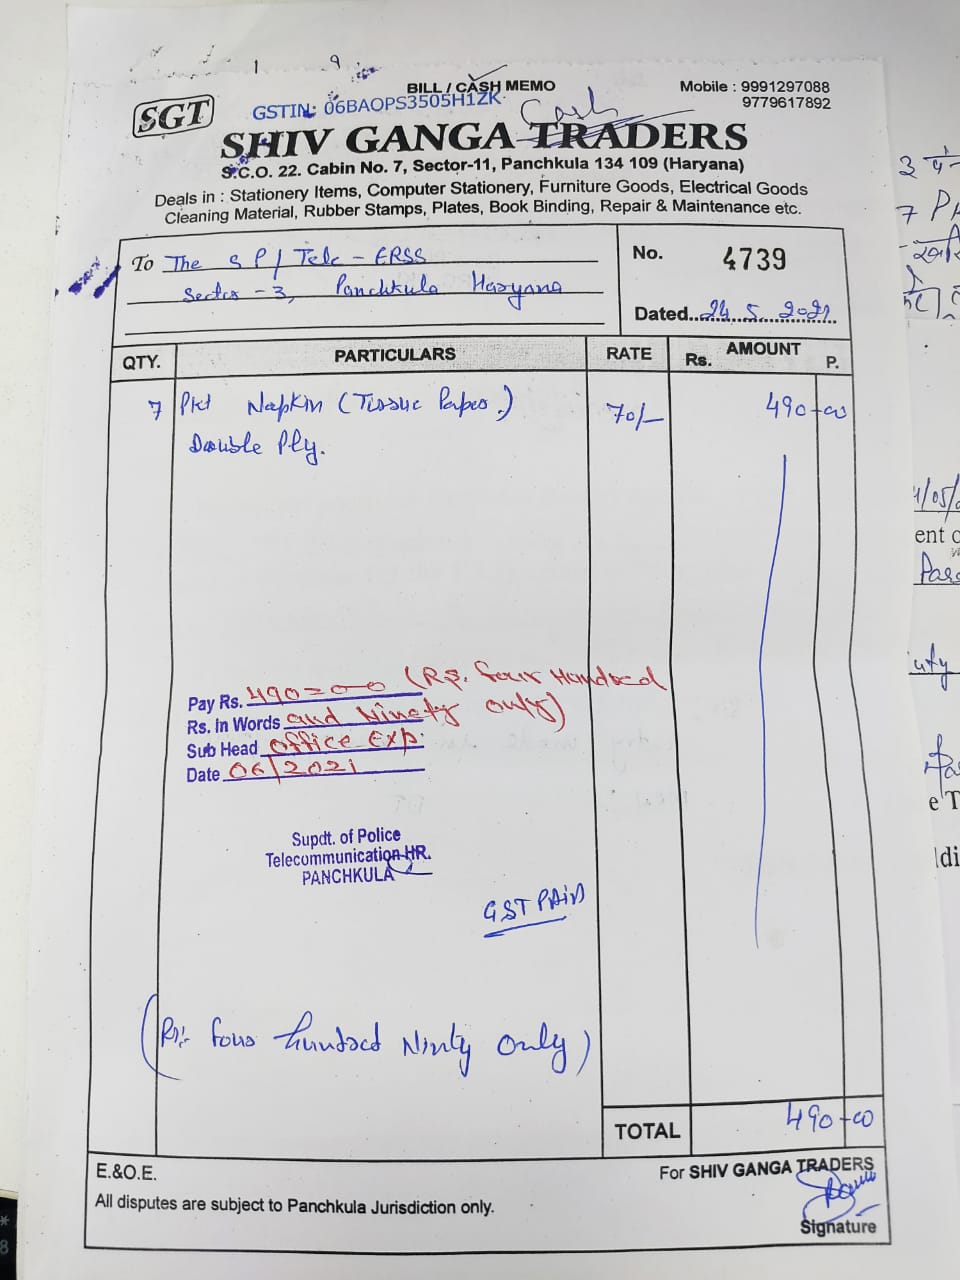 BILL / CASH MEMO
Mobile : 9991297088
9779617892
SGT
GSTIN: 06BAOPS3505H1ZK
Cash
SHIV GANGA TRADERS
S.C.O. 22. Cabin No. 7, Sector-11, Panchkula 134 109 (Haryana)
Deals in : Stationery Items, Computer Stationery, Furniture Goods, Electrical Goods
Cleaning Material, Rubber Stamps, Plates, Book Binding, Repair & Maintenance etc.
To The S P / Tele - ERSS
Sector - 3, Panchkula Haryana
No. 4739
Dated..24.5.2021
QTY. PARTICULARS RATE AMOUNT
Rs. P.
7 Pkt Napkin (Tissue Paper.) 70/- 490-00
Double Ply.
Pay Rs. 490=00 (Rs. four Hundred
Rs. In Words and Ninety only)
Sub Head office Exp.
Date 06/2021
Supdt. of Police
Telecommunication HR.
PANCHKULA
GST PAID
(Rs:- four hundred Ninty Only)
TOTAL 490-00
E.&O.E.
For SHIV GANGA TRADERS
All disputes are subject to Panchkula Jurisdiction only.
Signature